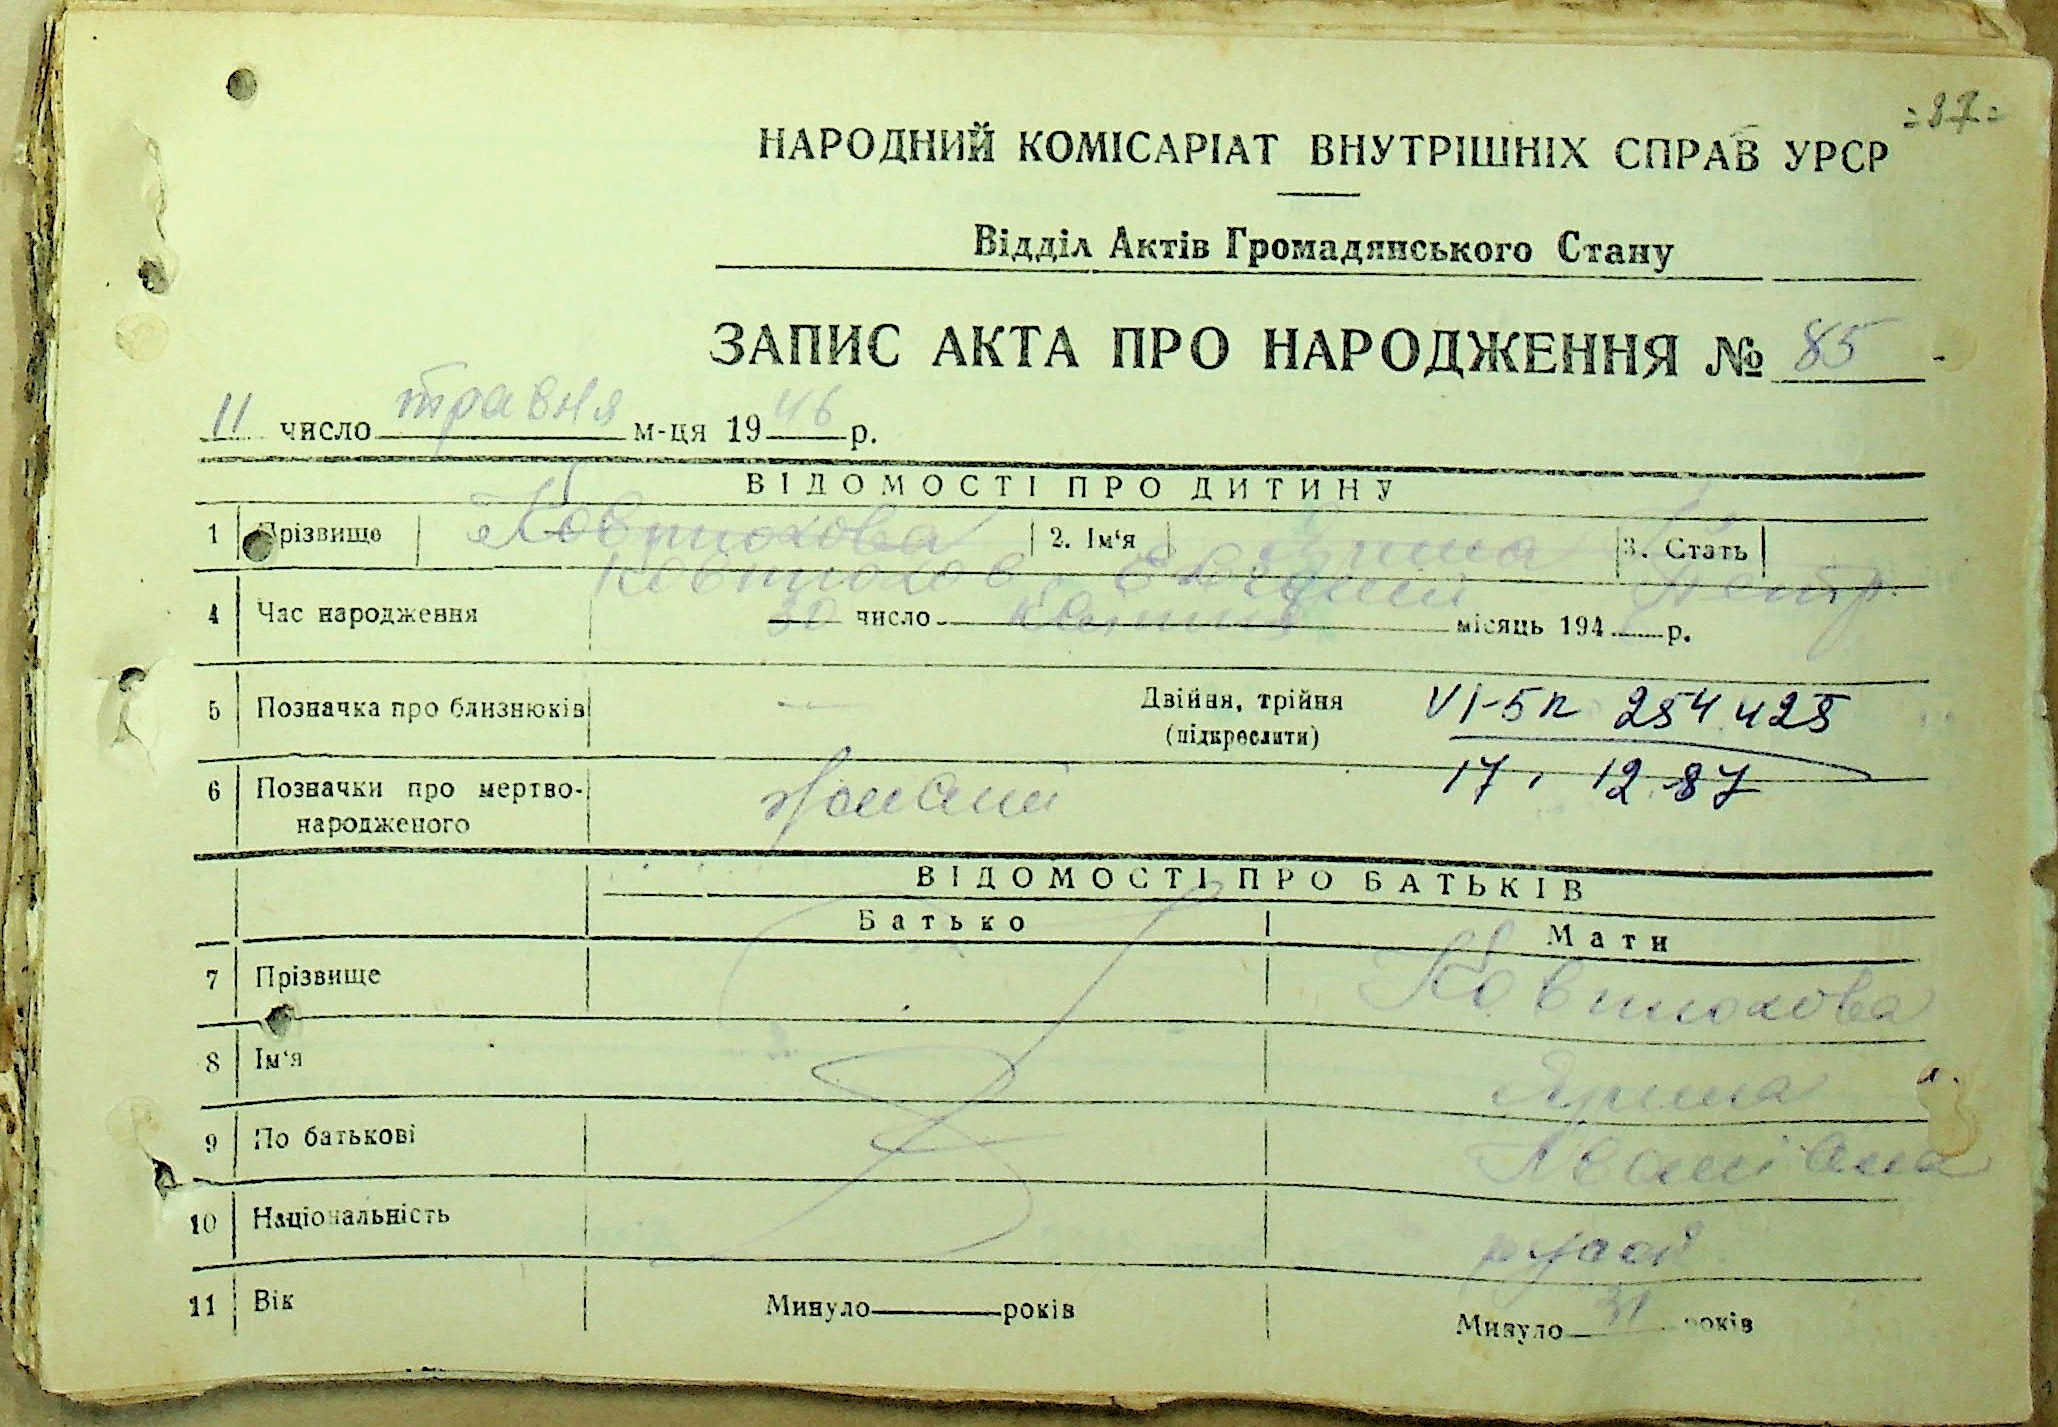 =87=
НАРОДНИЙ КОМІСАРІАТ ВНУТРІШНІХ СПРАВ УРСР
Відділ Актів Громадянського Стану
ЗАПИС АКТА ПРО НАРОДЖЕННЯ № 85
11 число травня м-ця 1946 р.
ВІДОМОСТІ ПРО ДИТИНУ
1 Прізвище Ковтюхова 2. Ім‘я 3. Стать
Ковтюхов
4 Час народження 30 число квітня місяць 194 р.
5 Позначка про близнюків Двійня, трійня VI-БП 254425
(підкреслити)
6 Позначки про мертво- 17, 12 87
народженого
ВІДОМОСТІ ПРО БАТЬКІВ
Батько Мати
7 Прізвище Ковтюхова
8 Ім‘я Ярина
9 По батькові Іванівна
10 Національність
11 Вік Минуло років Минуло 31 років